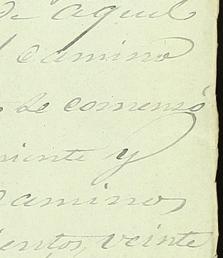 de aquel
camino
se comenzó
niente y
caminos
cientos, veinte